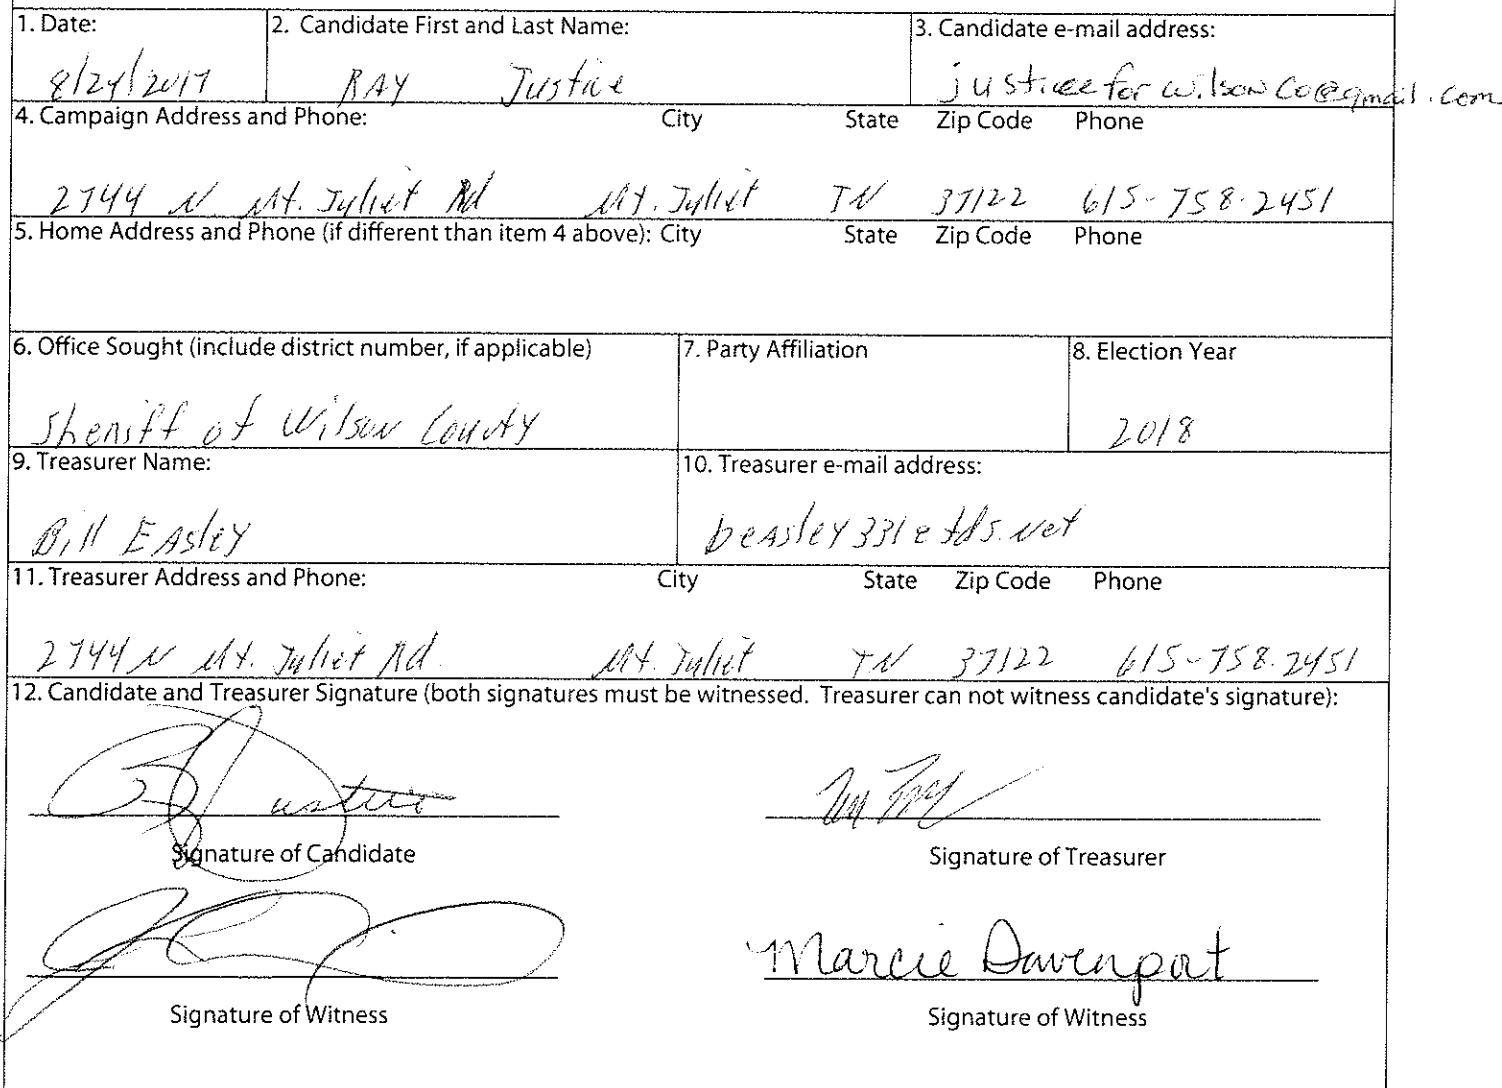 1. Date: 2. Candidate First and Last Name: 3. Candidate e-mail address:
8/24/2017 RAY Justice justiceforwilsonco@gmail.com
4. Campaign Address and Phone: City State Zip Code Phone
2744 N Mt. Juliet Rd Mt. Juliet TN 37122 615-758-2451
5. Home Address and Phone (if different than item 4 above): City State Zip Code Phone
6. Office Sought (include district number, if applicable) 7. Party Affiliation 8. Election Year
Sheriff of Wilson County 2018
9. Treasurer Name: 10. Treasurer e-mail address:
Bill EAsley beasley331@tds.net
11. Treasurer Address and Phone: City State Zip Code Phone
2744 N Mt. Juliet Rd. Mt. Juliet TN 37122 615-758-2451
12. Candidate and Treasurer Signature (both signatures must be witnessed. Treasurer can not witness candidate's signature):
Signature of Candidate Signature of Treasurer
Marcie Davenport
Signature of Witness Signature of Witness